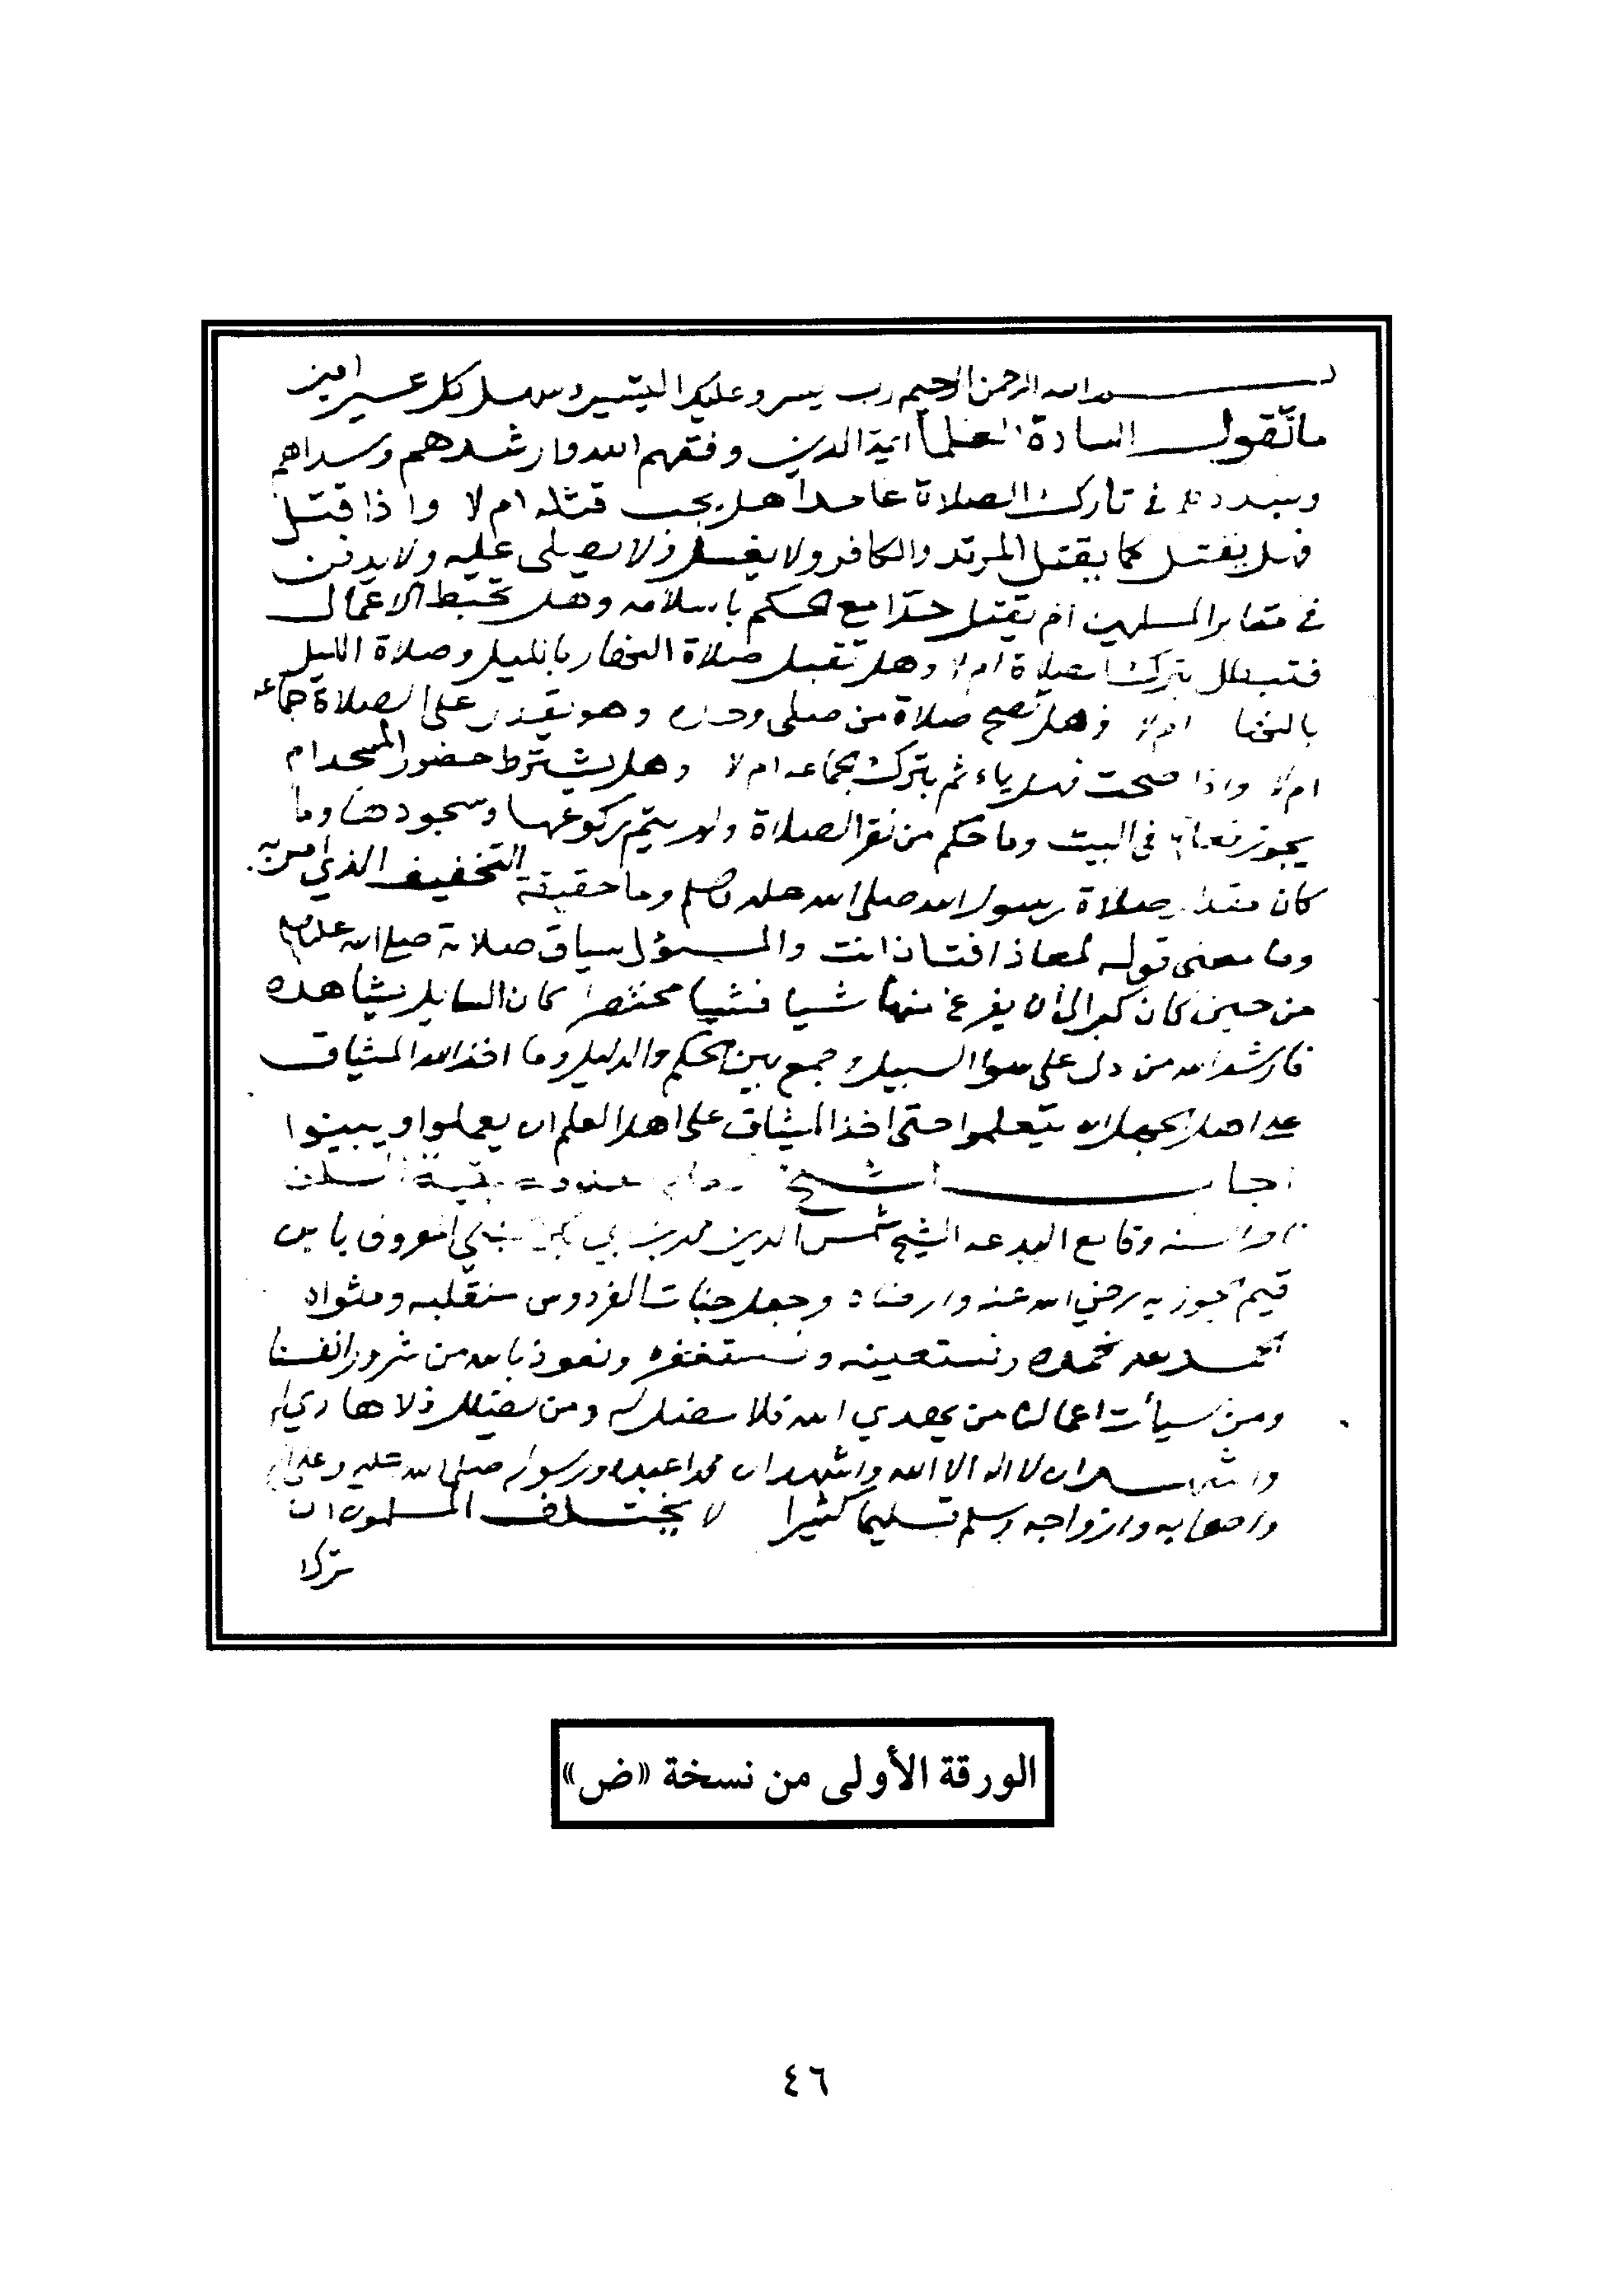 بسم الله الرحمن الرحيم رب يسر وعليك التيسير وسهل كل عسير امين
ما تقول السادة العلما ائمة الدين وفقهم الله وارشدهم وسداهم
وسددهم في تارك الصلاة عامدا هل يجب قتله ام لا واذا قتل
فهل يقتل كما يقتل المرتد والكافر ولا يغسل ولا يصلى عليه ولا يدفن
في مقابر المسلمين ام يقتل حدا مع الحكم باسلامه وهل تحبط الاعمال
فتبطل بترك الصلاة ام لا وهل تقبل صلاة النهار بالليل وصلاة الليل
بالنها ام لا وهل تصح صلاة من صلى وحده وهو يقدر على الصلاة جماعه
ام لا واذا صحت فهل ياءثم بترك الجماعه ام لا وهل يشترط حضور المسجد ام
يجوز فعلها في البيت وما حكم من نقر الصلاة ولم يتم ركوعها وسجودها وما
كان مقدار صلاة رسول الله صلى الله عليه وسلم وما حقيقة التخفيف الذي امر به
وما معنى قوله لمعاذ افتان انت والمسؤل سياق صلاته صلى الله عليه وسلم
من حين كان يكبر الى ان يفرغ منها شيا فشيا مختصرا كان السايل يشاهده
فارشد الله من دل على سوا السبيل وجمع بين الحكم والدليل وما اخذ الله الميثاق
على اهل الجهل ان يتعلموا حتى اخذ الميثاق على اهل العلم ان يعملوا ويبينوا
اجاب الشيخ بقية السلف
السنه وقامع البدعه الشيخ شمس الدين محمد بن ابي بكر الحنبلي المعروف بابن
قيم الجوزيه رضي الله عنه وارضاه وجعل جنات الفردوس منقلبه ومثواه
الحمد لله نحمده ونستعينه ونستغفره ونعوذ بالله من شرور انفسنا
ومن سيأت اعمالنا من يهدي الله فلا مضل له ومن يضلل فلا هادي له
واشهد ان لا اله الا الله واشهد ان محمدا عبده ورسوله صلى الله عليه وعلى اله
واصحابه وازواجه وسلم تسليما كثيرا لا يختلف المسلمون ان
ترك ا
الورقة الأولى من نسخة «ض»
٤٦